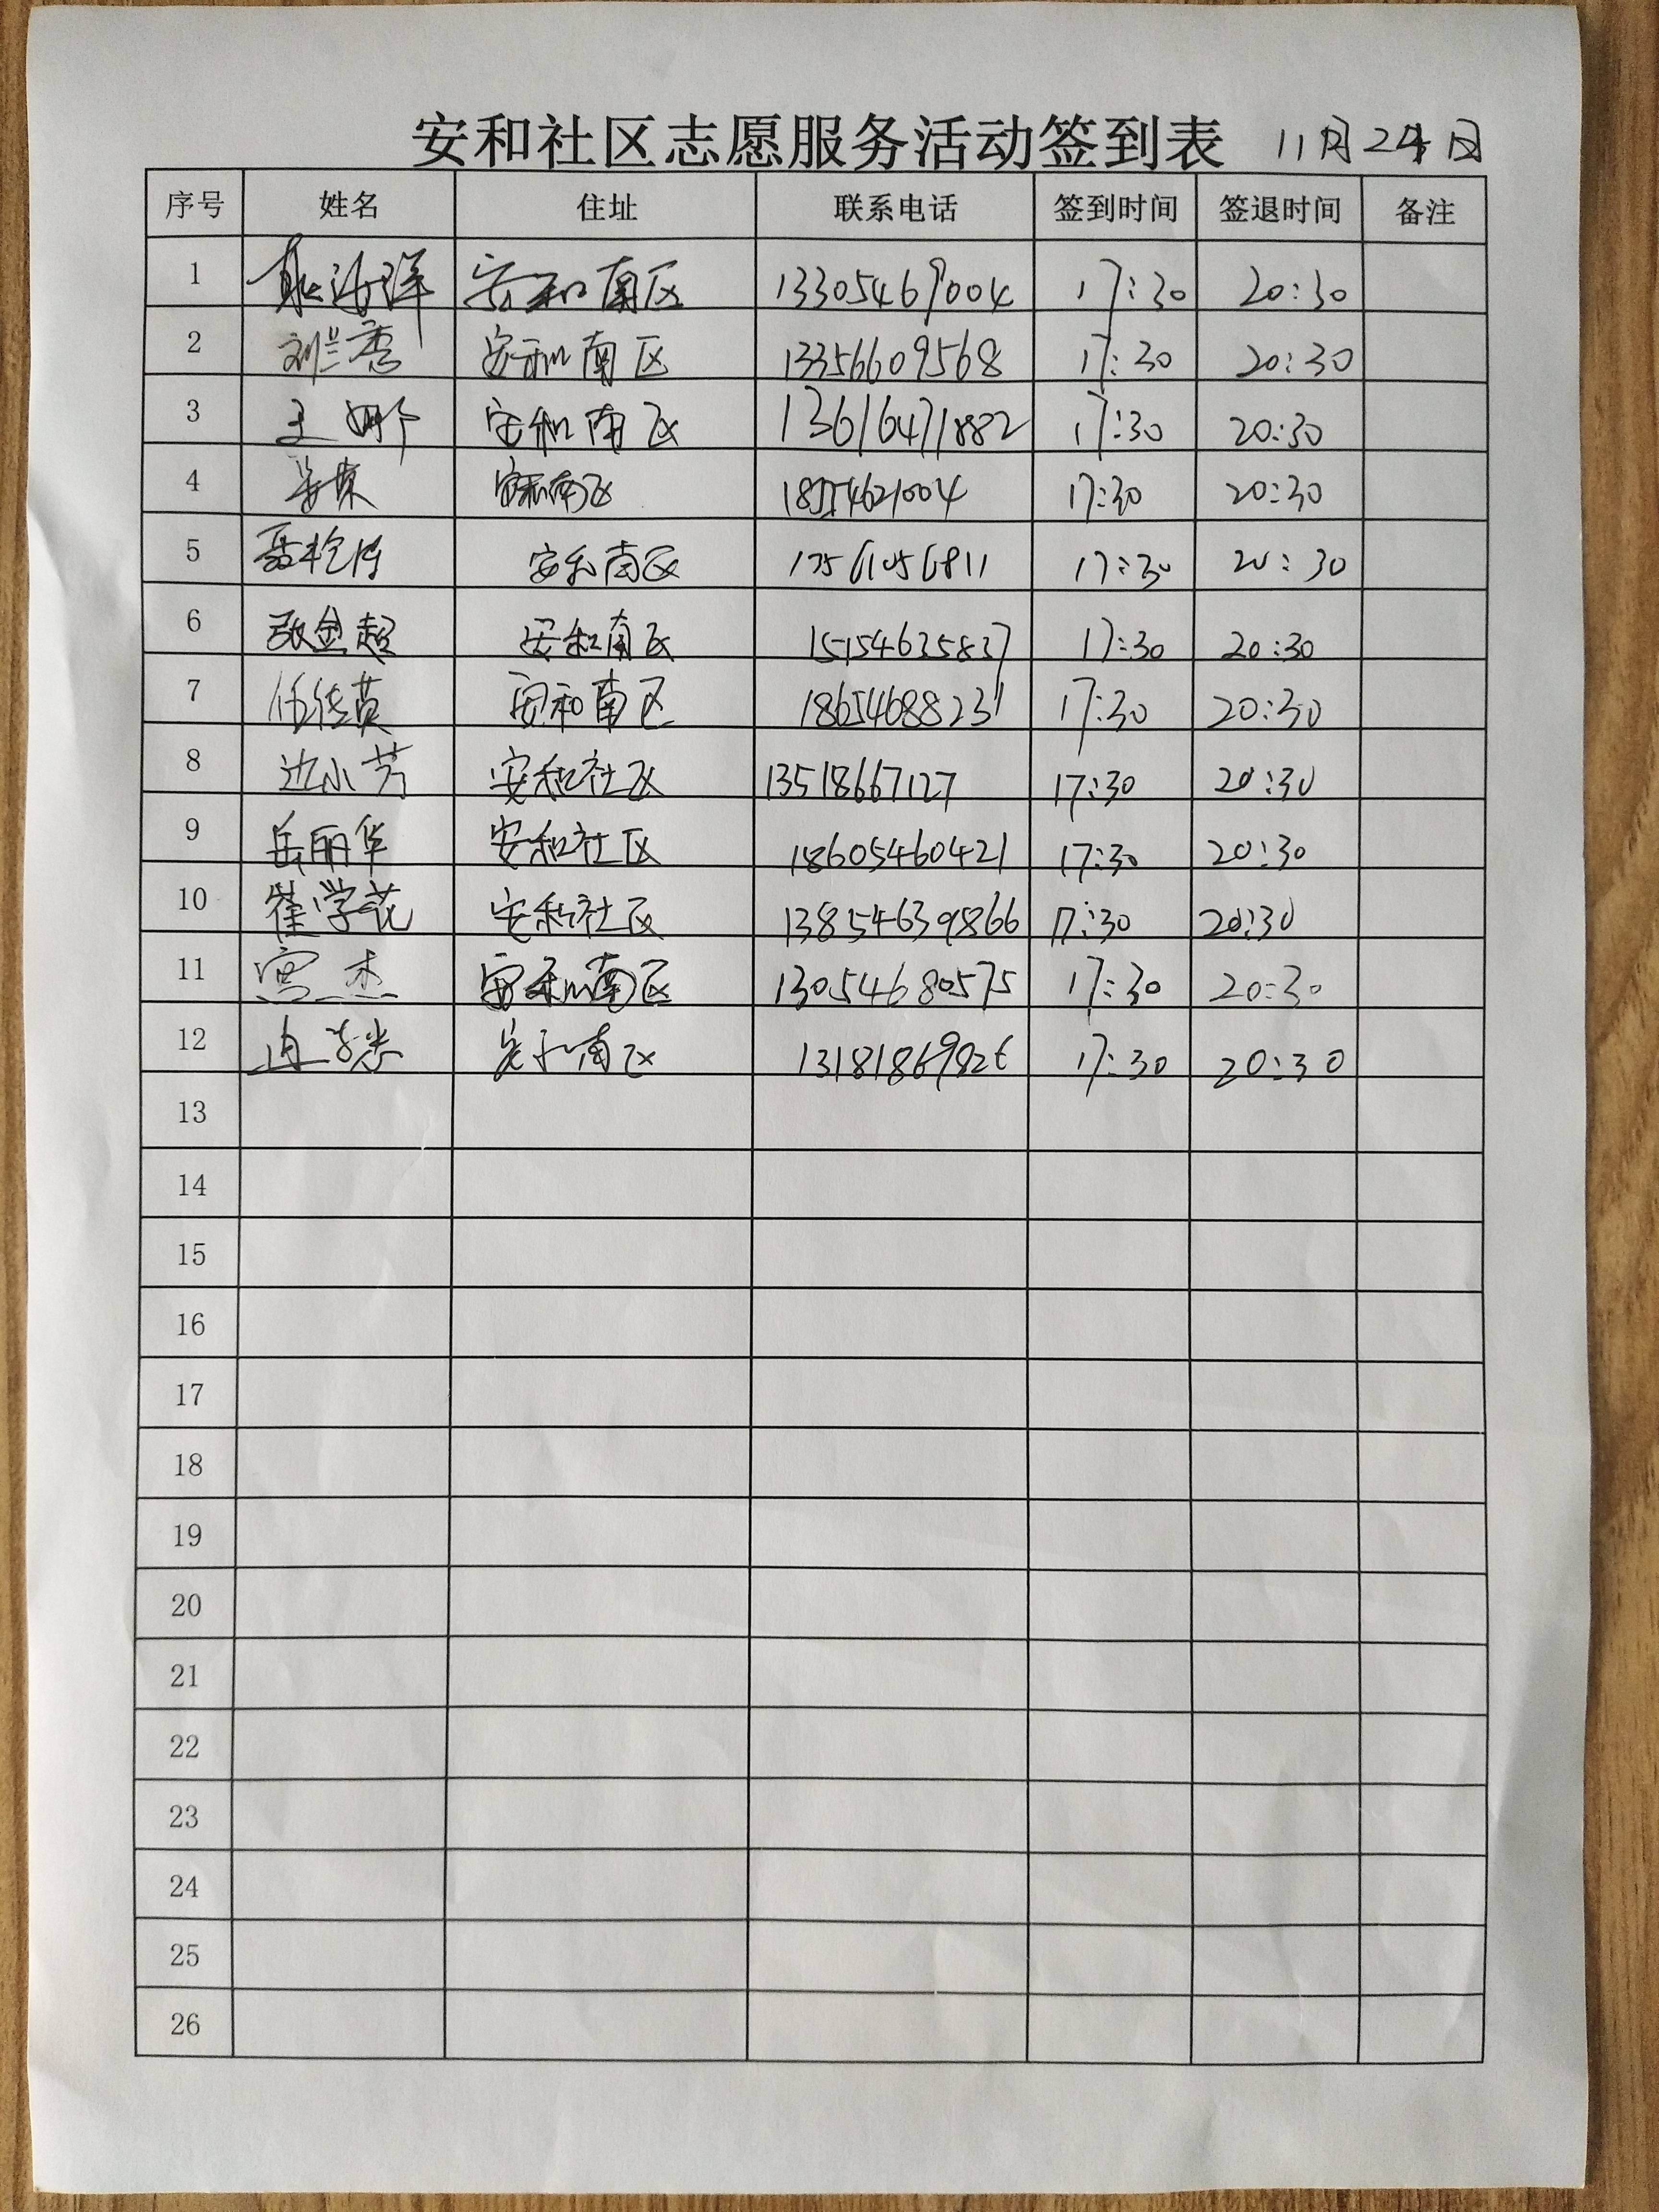 安和社区志愿服务活动签到表 11月24日
序号 姓名 住址 联系电话 签到时间 签退时间 备注
1 耿海洋 安和南区 13305469004 17:30 20:30
2 刘兰秀 安和南区 13356609568 17:30 20:30
3 王娜 安和南区 13616471882 17:30 20:30
4 安和南区 18554621004 17:30 20:30
5 安和南区 17561056811 17:30 20:30
6 张金超 安和南区 15154635837 17:30 20:30
7 任传英 安和南区 18654688231 17:30 20:30
8 边小芳 安和社区 13518667127 17:30 20:30
9 岳丽华 安和社区 18605460421 17:30 20:30
10 崔学花 安和社区 13854639866 17:30 20:30
11 宫杰 安和南区 13054680575 17:30 20:30
12 安和南区 13181869826 17:30 20:30
13
14
15
16
17
18
19
20
21
22
23
24
25
26